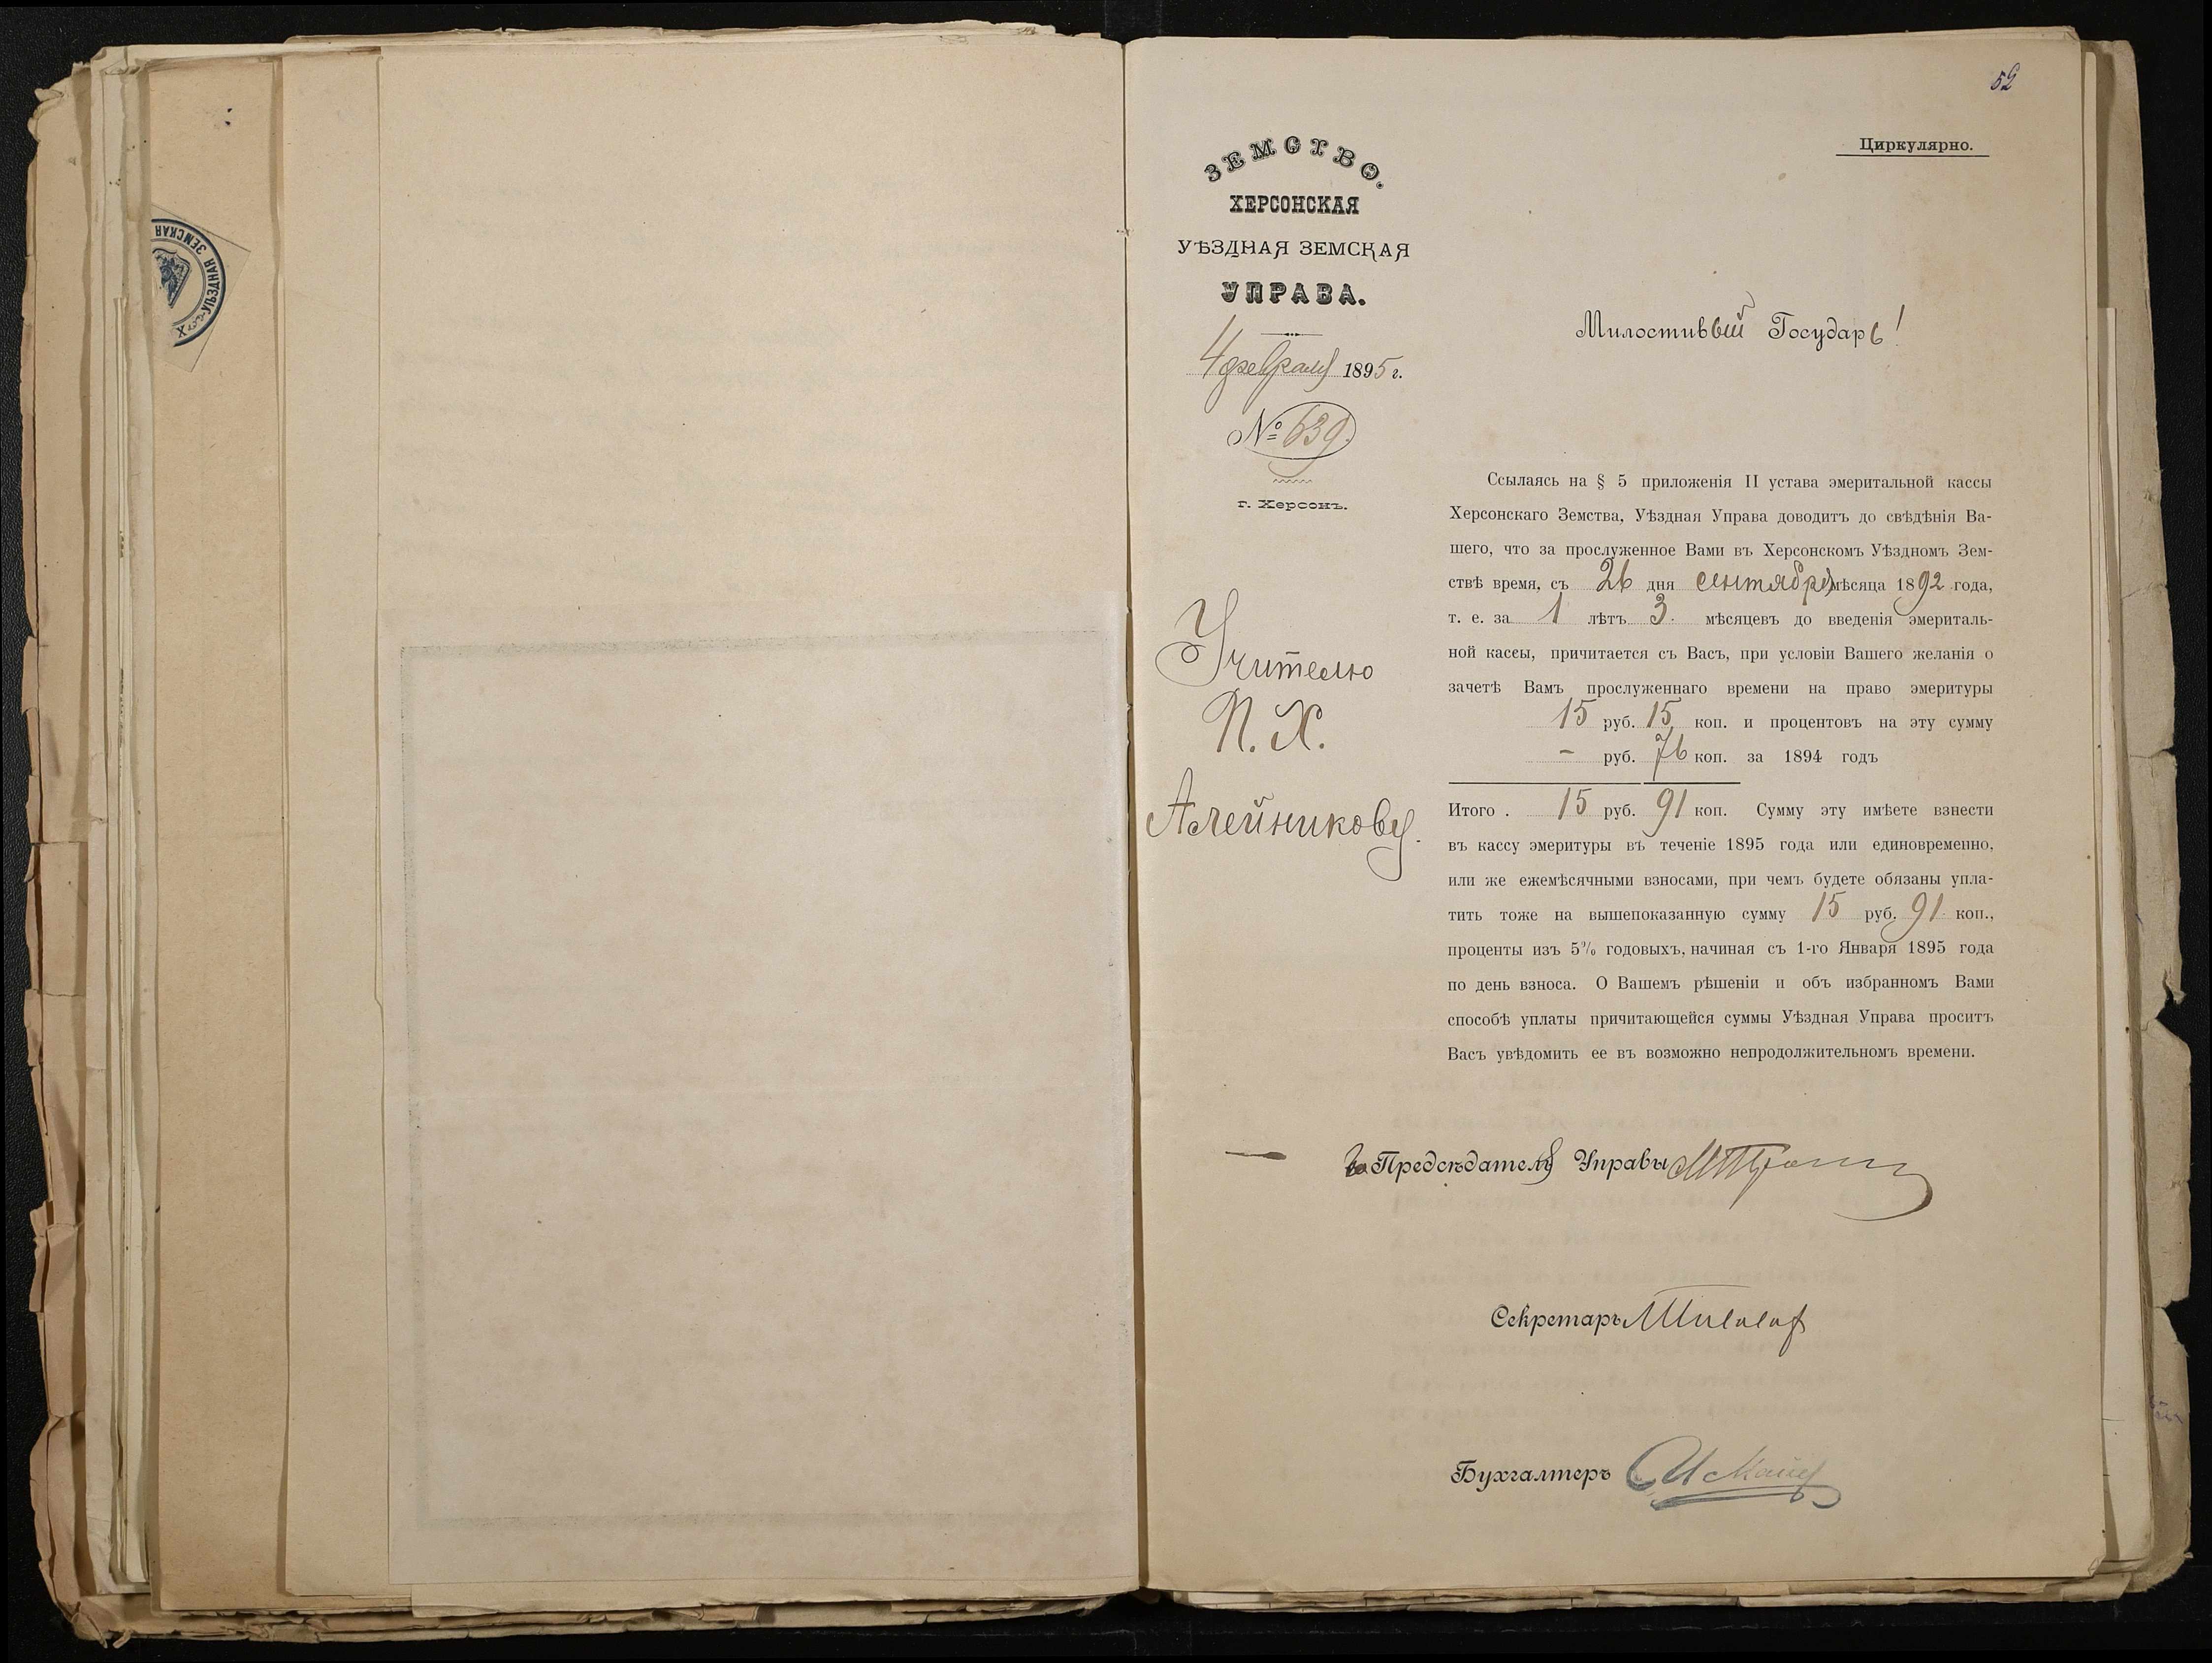 52
Циркулярно.
ЗЕМСТВО.
ХЕРСОНСКАЯ
УѢЗДНАЯ ЗЕМСКАЯ
УПРАВА.
4 февраля 1895 г.
№ 639.
г. Херсонъ.
Учителю
П. Х.
Алейникову.
Милостивый Государь!
Ссылаясь на § 5 приложенія II устава эмеритальной кассы
Херсонскаго Земства, Уѣздная Управа доводитъ до свѣдѣнія Ва-
шего, что за прослуженное Вами въ Херсонскомъ Уѣздномъ Зем-
ствѣ время, съ 26 дня сентября мѣсяца 1892 года,
т. е. за 1 лѣтъ 3. мѣсяцевъ до введенія эмериталь-
ной кассы, причитается съ Васъ, при условіи Вашего желанія о
зачетѣ Вамъ прослуженнаго времени на право эмеритуры
15 руб. 15 коп. и процентовъ на эту сумму
— руб. 76 коп. за 1894 годъ
Итого . 15 руб. 91 коп. Сумму эту имѣете взнести
въ кассу эмеритуры въ теченіе 1895 года или единовременно,
или же ежемѣсячными взносами, при чемъ будете обязаны упла-
тить тоже на вышепоказанную сумму 15 руб. 91 коп.,
проценты изъ 5% годовыхъ, начиная съ 1-го Января 1895 года
по день взноса. О Вашемъ рѣшеніи и объ избранномъ Вами
способѣ уплаты причитающейся суммы Уѣздная Управа проситъ
Васъ увѣдомить ее въ возможно непродолжительномъ времени.
За Предсѣдателя Управы
Секретарь
Бухгалтеръ
УѢЗДНАЯ ЗЕМСКАЯ